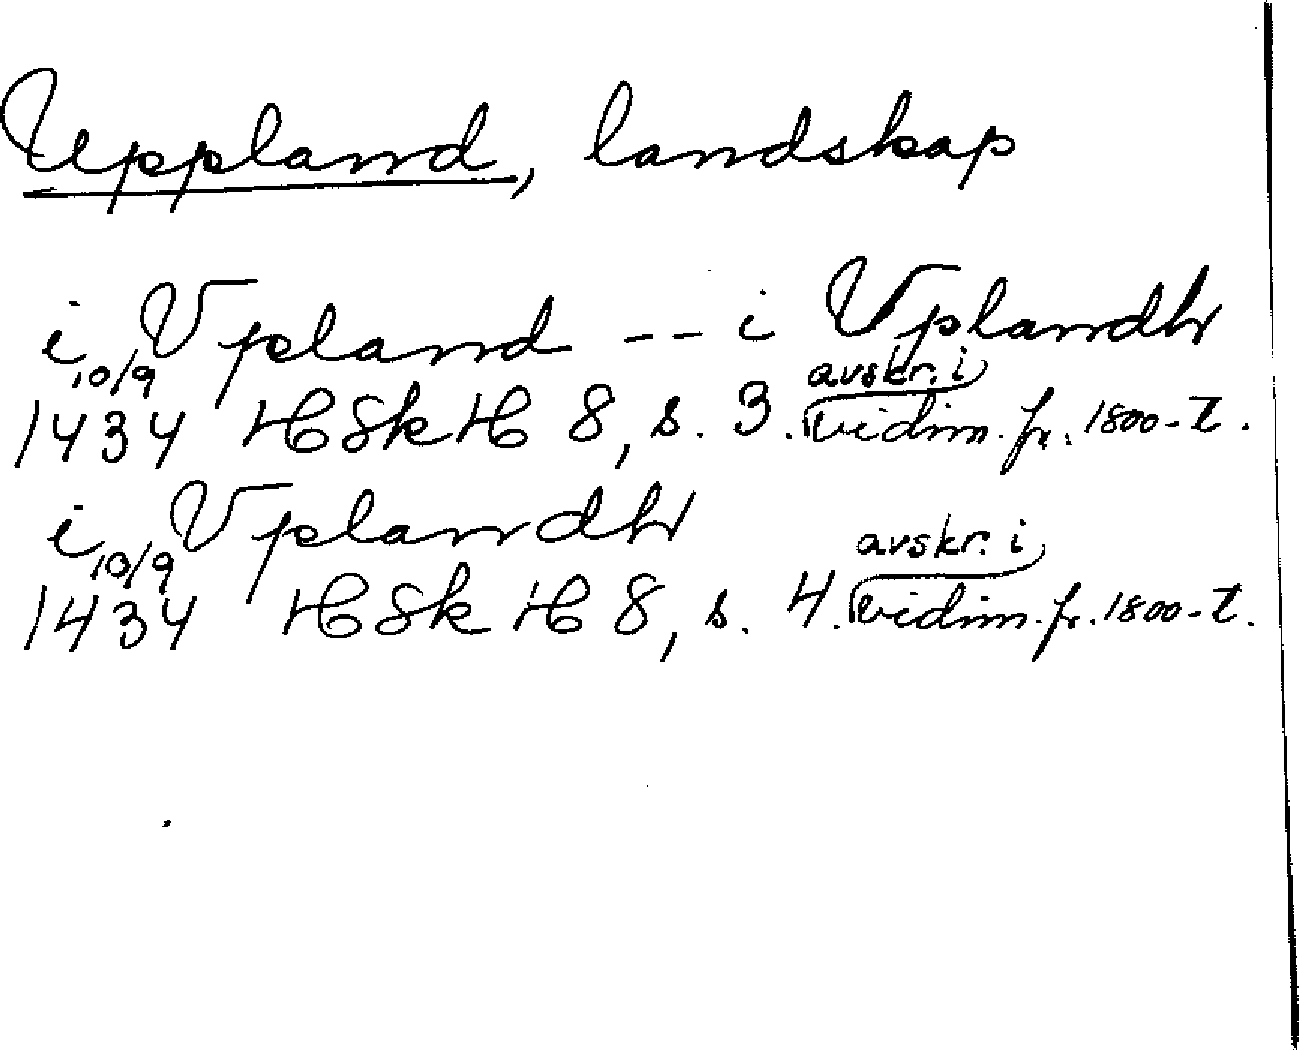 Uppland, landskap
i Vpland -- i Vplandh
10/9 avskr. i
1434 HSkH 8, s. 3. vidim. fr. 1800-t.
i Vplandh
10/9 avskr. i
1434 HSkH 8, s. 4. vidim. fr. 1800-t.